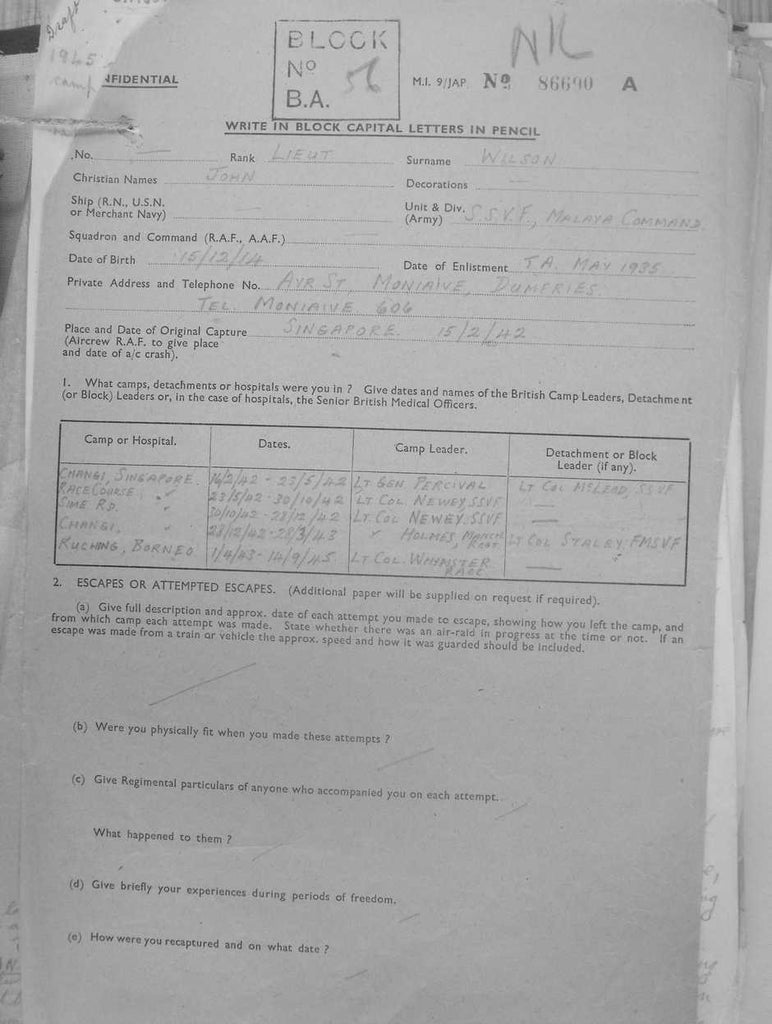 Draft
1945
camp
NFIDENTIAL
BLOCK
Nº 56
B.A.
NIL
M.I. 9/JAP Nº 86690 A
WRITE IN BLOCK CAPITAL LETTERS IN PENCIL
No. — Rank LIEUT Surname WILSON
Christian Names JOHN Decorations
Ship (R.N., U.S.N.
or Merchant Navy)
Unit & Div.
(Army) S.S.V.F., MALAYA COMMAND
Squadron and Command (R.A.F., A.A.F.)
Date of Birth 15/12/14 Date of Enlistment TA. MAY 1935
Private Address and Telephone No. AYR ST, MONIAIVE, DUMFRIES.
TEL. MONIAIVE 606
Place and Date of Original Capture SINGAPORE. 15/2/42
(Aircrew R.A.F. to give place
and date of a/c crash).
1. What camps, detachments or hospitals were you in ? Give dates and names of the British Camp Leaders, Detachment
(or Block) Leaders or, in the case of hospitals, the Senior British Medical Officers.
Camp or Hospital. Dates. Camp Leader. Detachment or Block
Leader (if any).
CHANGI, SINGAPORE. /2/42 - 23/5/42 LT GEN PERCIVAL LT COL McLEOD, SSVF
RACE COURSE, " 23/5/42 - 30/10/42 LT. COL. NEWEY SSVF —
SIME RD. " 30/10/42 - 28/12/42 LT. COL NEWEY SSVF —
CHANGI, " 28/12/42 - 28/3/43 " HOLMES, MANCH REGT LT COL STALEY FMSVF
KUCHING, BORNEO 1/4/43 - 14/9/45 LT COL. —
2. ESCAPES OR ATTEMPTED ESCAPES. (Additional paper will be supplied on request if required).
(a) Give full description and approx. date of each attempt you made to escape, showing how you left the camp, and
from which camp each attempt was made. State whether there was an air-raid in progress at the time or not. If an
escape was made from a train or vehicle the approx. speed and how it was guarded should be included.
(b) Were you physically fit when you made these attempts ?
(c) Give Regimental particulars of anyone who accompanied you on each attempt.
What happened to them ?
(d) Give briefly your experiences during periods of freedom.
(e) How were you recaptured and on what date ?